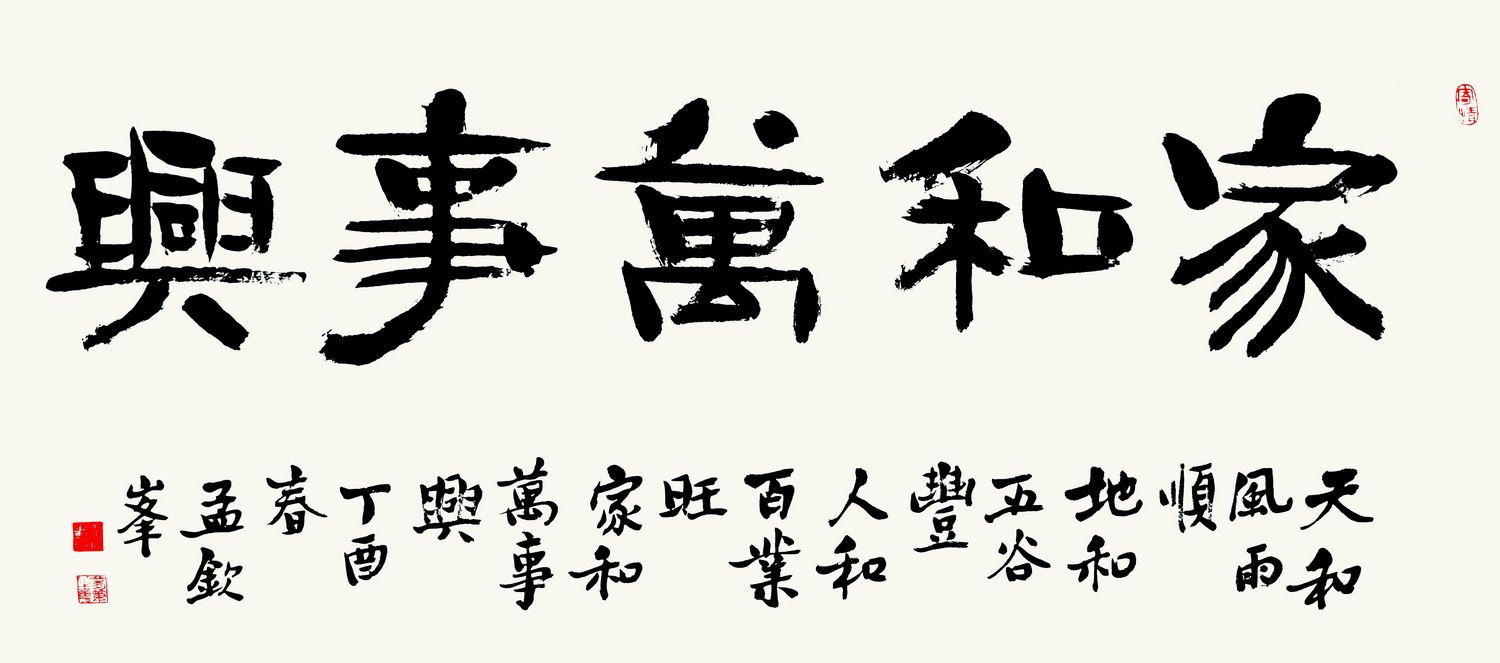 家和萬事興
天和
風雨
順
地和
五谷
豐
人和
百業
旺
家和
萬事
興
丁酉
春
孟欽
峯